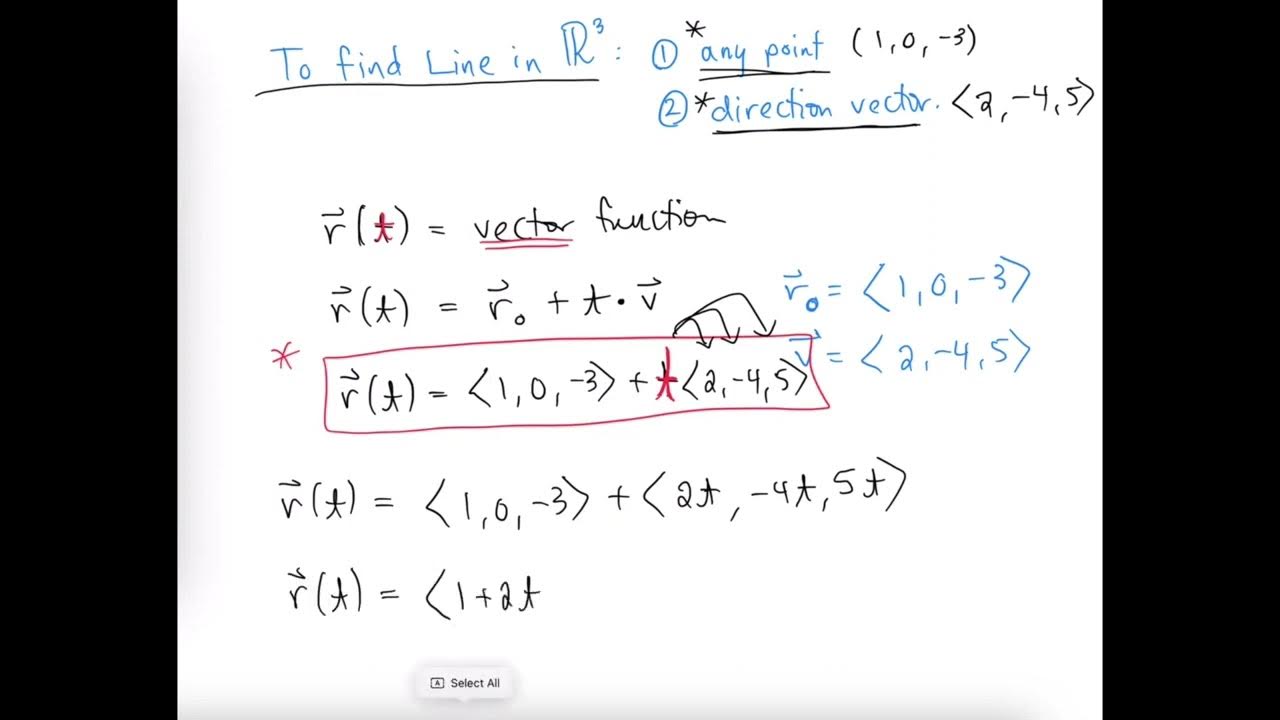 To find Line in ℝ³: ① *any point (1, 0, -3)
② *direction vector. ⟨2, -4, 5⟩
r⃗(t) = vector function
r⃗(t) = r⃗₀ + t · v⃗
r⃗₀ = ⟨1, 0, -3⟩
v⃗ = ⟨2, -4, 5⟩
* r⃗(t) = ⟨1, 0, -3⟩ + t⟨2, -4, 5⟩
r⃗(t) = ⟨1, 0, -3⟩ + ⟨2t, -4t, 5t⟩
r⃗(t) = ⟨1+2t
A Select All